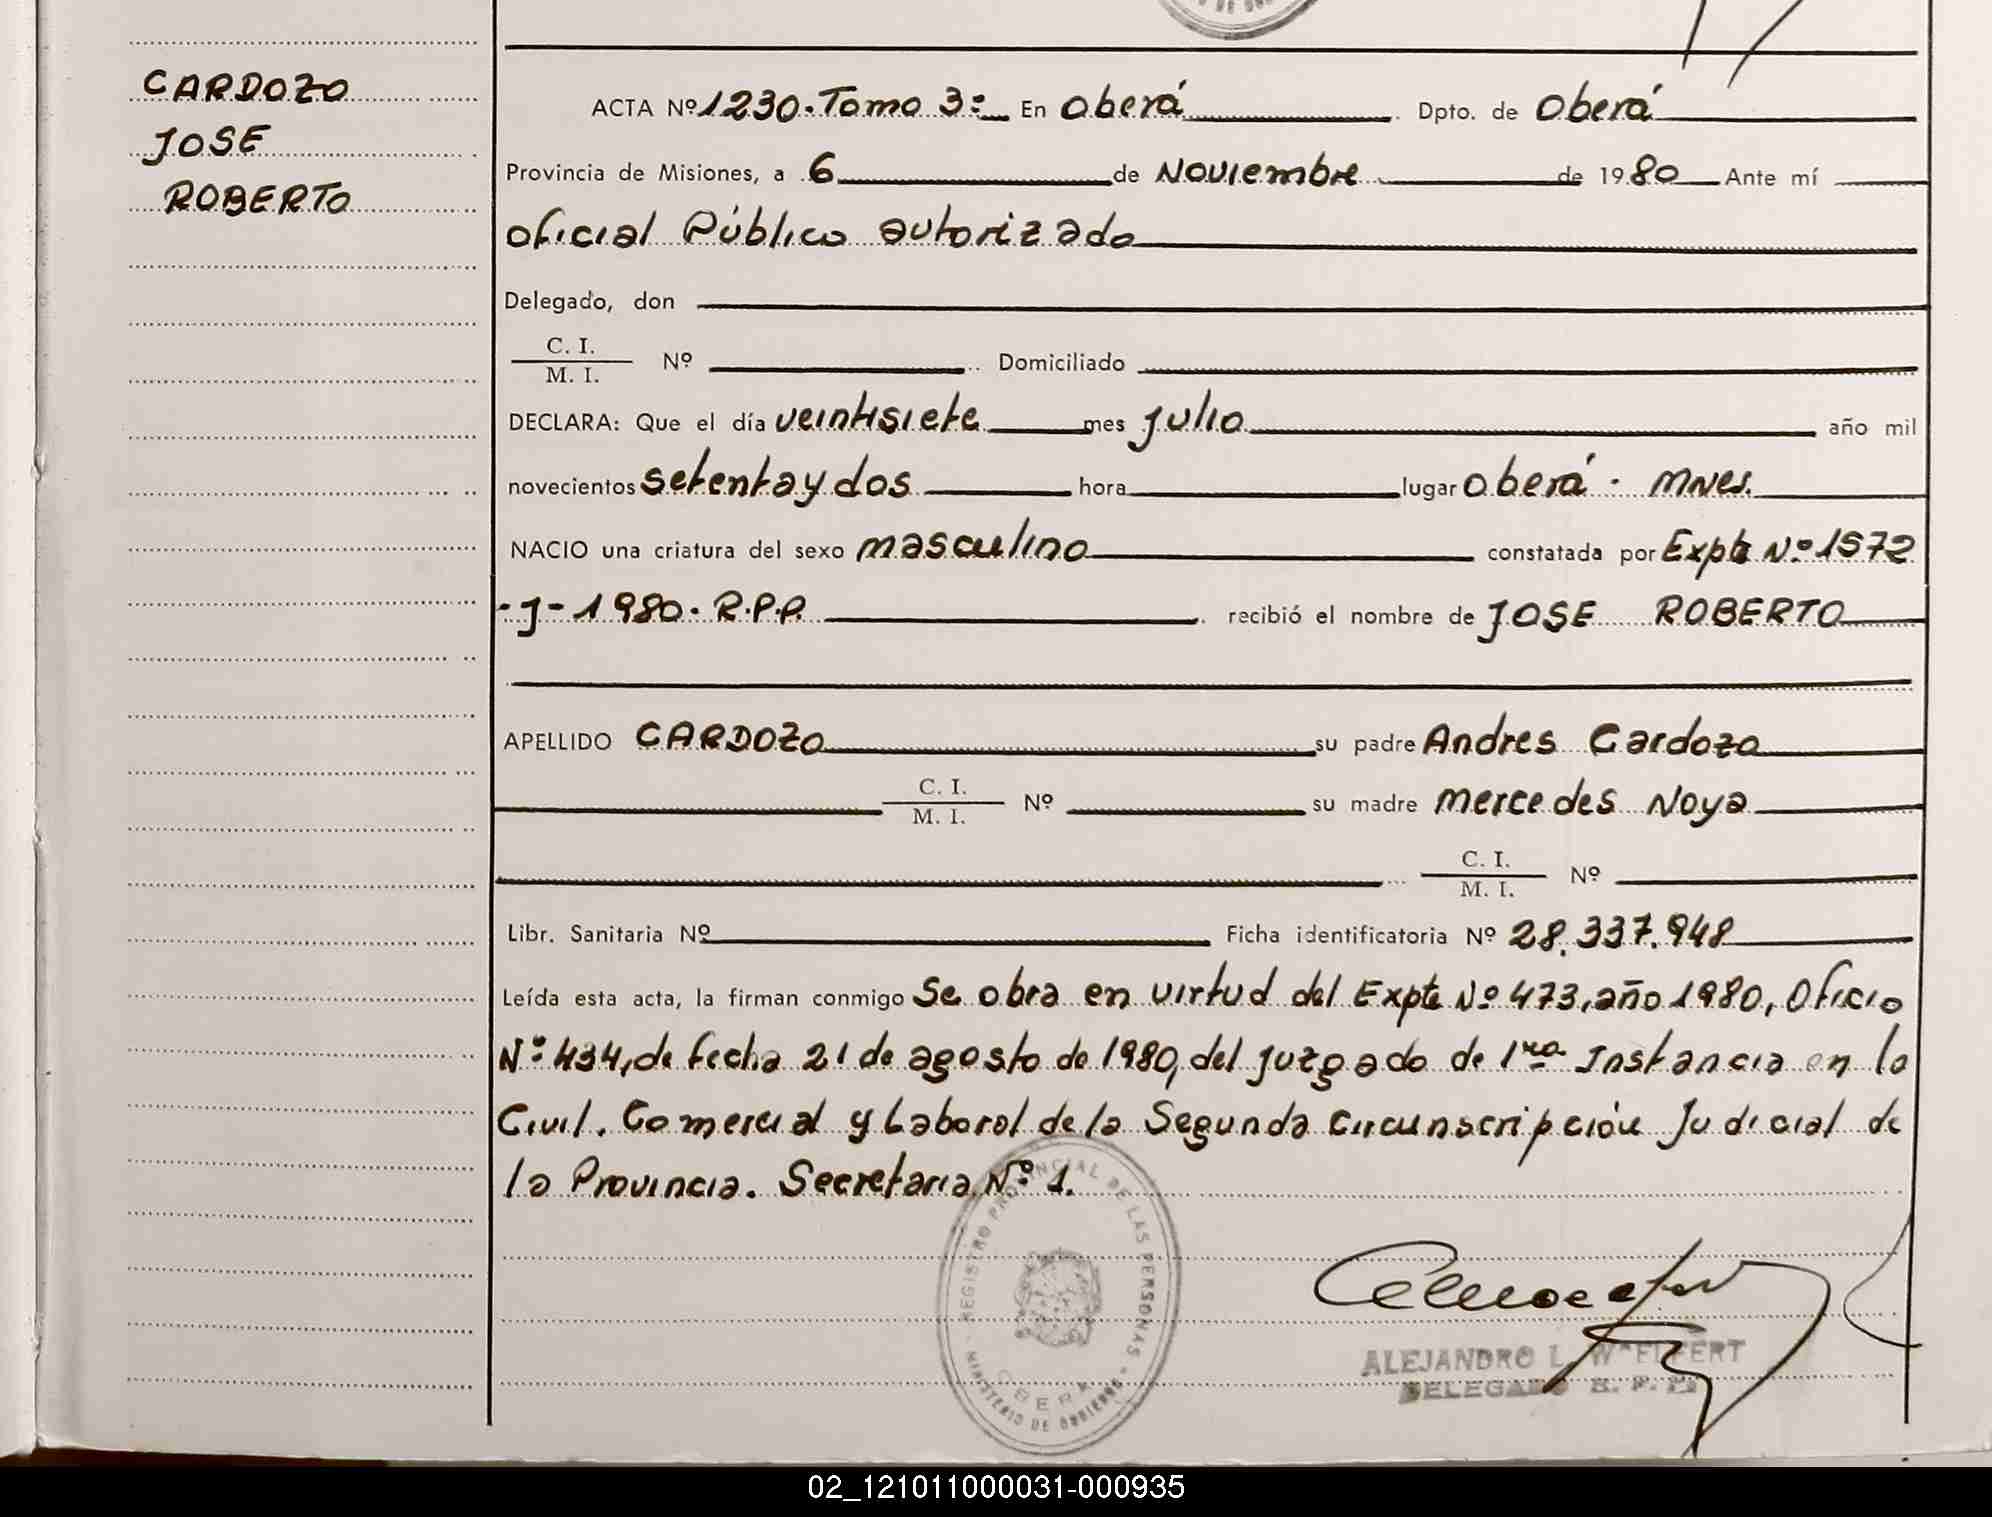 CARDOZO
JOSE
ROBERTO
ACTA Nº 1230. Tomo 3º En Oberá Dpto. de Oberá
Provincia de Misiones, a 6 de Noviembre de 1980 Ante mí
oficial Público autorizado
Delegado, don
C. I.
M. I. Nº Domiciliado
DECLARA: Que el día veintisiete mes julio año mil
novecientos setenta y dos hora lugar Oberá - Mnes.
NACIO una criatura del sexo masculino constatada por Expte Nº 1572
-J-1980. R.P.P. recibió el nombre de JOSE ROBERTO
APELLIDO CARDOZO su padre Andres Cardozo
C. I.
M. I. Nº su madre Mercedes Noya
C. I.
M. I. Nº
Libr. Sanitaria Nº Ficha identificatoria Nº 28.337.948
Leída esta acta, la firman conmigo Se obra en virtud del Expte Nº 473, año 1980, Oficio
Nº 434, de fecha 21 de agosto de 1980, del juzgado de 1ra Instancia en lo
Civil. Comercial y Laboral de la Segunda Circunscripción Judicial de
la Provincia. Secretaria Nº 1.
REGISTRO PROVINCIAL DE LAS PERSONAS -
OBERA
MINISTERIO DE GOBIERNO
ALEJANDRO L.
DELEGADO R. P. P.
02_121011000031-000935